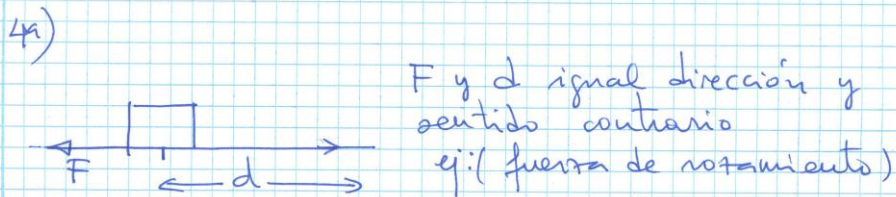 4ª)
F y d igual dirección y
sentido contrario
ej:( fuerza de rozamiento)
F
d